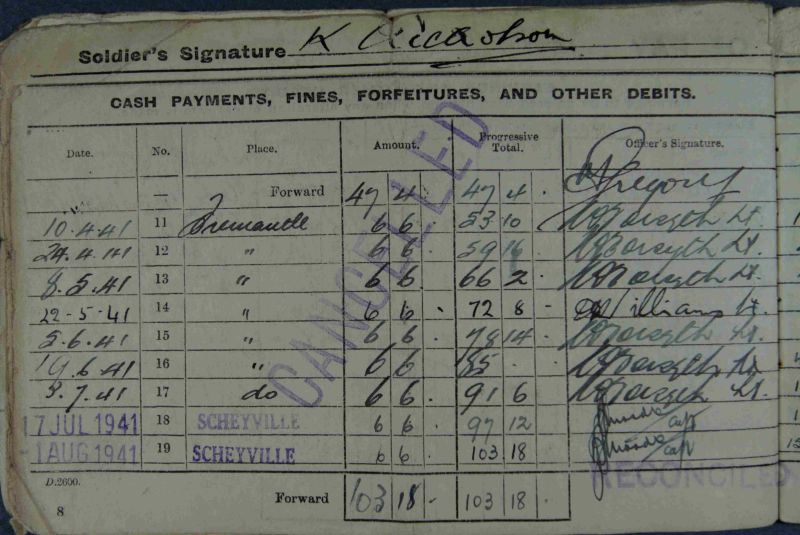 Soldier's Signature K Nickolson
CASH PAYMENTS, FINES, FORFEITURES, AND OTHER DEBITS.
Date. No. Place. Amount. Progressive Total. Officer's Signature.
— Forward 47 4 47 4 . Gregory
10.4.41 11 Fremantle 6 6 . 53 10 Forsyth Lt.
24.4.41 12 " 6 6 . 59 16 Forsyth Lt.
8.5.41 13 " 6 6 66 2 . Forsyth Lt.
22-5-41 14 " 6 6 . 72 8 . Williams Lt.
5.6.41 15 " 6 6 . 78 14 . Forsyth Lt.
19.6.41 16 " 6 6 85 . Forsyth Lt
3.7.41 17 do 6 6 . 91 6 Forsyth Lt.
17 JUL 1941 18 SCHEYVILLE 6 6 . 97 12 Capt
-1 AUG 1941 19 SCHEYVILLE 6 6 . 103 18 Capt
CANCELLED
RECONCILED
D.2600. Forward 103 18 - 103 18 .
8